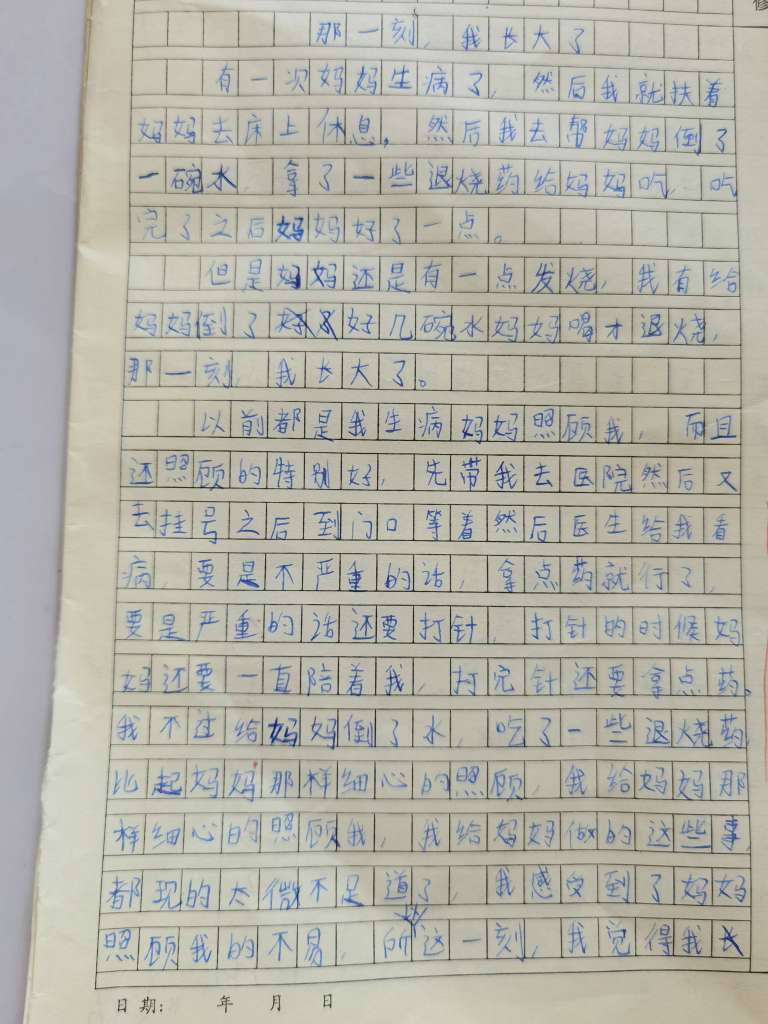 那一刻，我长大了
有一次妈妈生病了，然后我就扶着
妈妈去床上休息，然后我去帮妈妈倒了
一碗水，拿了一些退烧药给妈妈吃，吃
完了之后妈妈好了一点。
但是妈妈还是有一点发烧，我有给
妈妈倒了好几碗水妈妈喝才退烧，
那一刻，我长大了。
以前都是我生病妈妈照顾我，而且
还照顾的特别好，先带我去医院然后又
去挂号之后到门口等着然后医生给我看
病，要是不严重的话，拿点药就行了，
要是严重的话还要打针，打针的时候妈
妈还要一直陪着我，打完针还要拿点药。
我不过给妈妈倒了水，吃了一些退烧药
比起妈妈那样细心的照顾，我给妈妈那
样细心的照顾我，我给妈妈做的这些事，
都现的太微不足道了，我感受到了妈妈
照顾我的不易，所以这一刻，我觉得我长
日期： 年 月 日